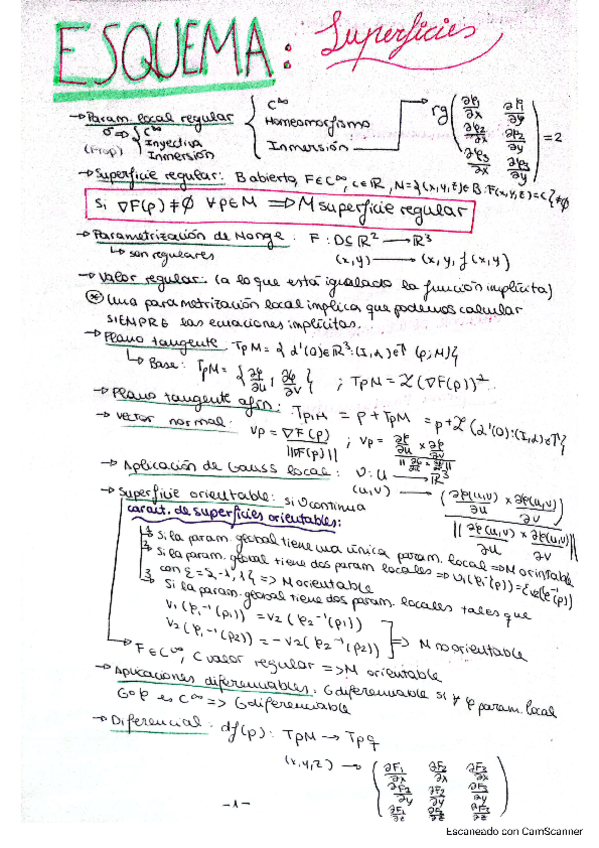 ESQUEMA: Superficies
→ Param. local regular { C^∞
Homeomorfismo
Inmersión → rg (∂φ1/∂x ∂φ1/∂y
∂φ2/∂x ∂φ2/∂y
∂φ3/∂x ∂φ3/∂y) = 2
(Prop) σ => { C^∞
Inyectiva
Inmersión
→ Superficie regular: B abierto, F∈C^∞, c∈ℝ, M={(x,y,z)∈B:F(x,y,z)=c}≠∅
Si ∇F(p)≠0 ∀p∈M => M superficie regular
→ Parametrización de Monge: F: D⊆ℝ² → ℝ³
↳ son regulares (x,y) → (x,y, f(x,y)
→ Valor regular: (a lo que está igualado la función implícita)
⊛ Una parametrización local implica que podemos calcular
SIEMPRE las ecuaciones implícitas.
→ Plano tangente TpM={α'(0)∈ℝ³:(I,α)∈T(p;M)}
↳ Base: TpM={∂φ/∂u, ∂φ/∂v} ; TpM = ℒ(∇F(p))^⊥
→ Plano tangente afín: Tp,M = p+TpM = p+ℒ{α'(0):(I,α)∈T}
→ Vector normal: νp=∇F(p)/||∇F(p)|| ; νp= ∂φ/∂u × ∂φ/∂v / ||∂φ/∂u × ∂φ/∂v||
→ Aplicación de Gauss local: ν: U → ℝ³
(u,v) → (∂φ(u,v)/∂u × ∂φ(u,v)/∂v) / ||∂φ(u,v)/∂u × ∂φ(u,v)/∂v||
→ Superficie orientable: si ν continua
caract. de superficies orientables:
1 Si la param. global tiene una única param. local => M orintable
2 Si la param. global tiene dos param locales => ν1(φ1^-1(p))=εν2(φ2^-1(p))
con ε={-1,1} => M orientable
3 Si la param. global tiene dos param. locales tales que
ν1(φ1^-1(p1)) = ν2(φ2^-1(p1))
ν2(φ1^-1(p2)) = -ν2(φ2^-1(p2)) ] => M no orientable
→ F∈C^∞, C valor regular => M orientable
→ Aplicaciones diferenciables: G diferenciable si ∀ φ param. local
G∘φ es C^∞ => G diferenciable
→ Diferencial: df(p): TpM → Tpq
(x,y,z) → (∂F1/∂x ∂F2/∂x ∂F3/∂x
∂F2/∂y ∂F2/∂y ∂F3/∂y
∂F1/∂z ∂F2/∂z ∂F3/∂z)
-1-
Escaneado con CamScanner